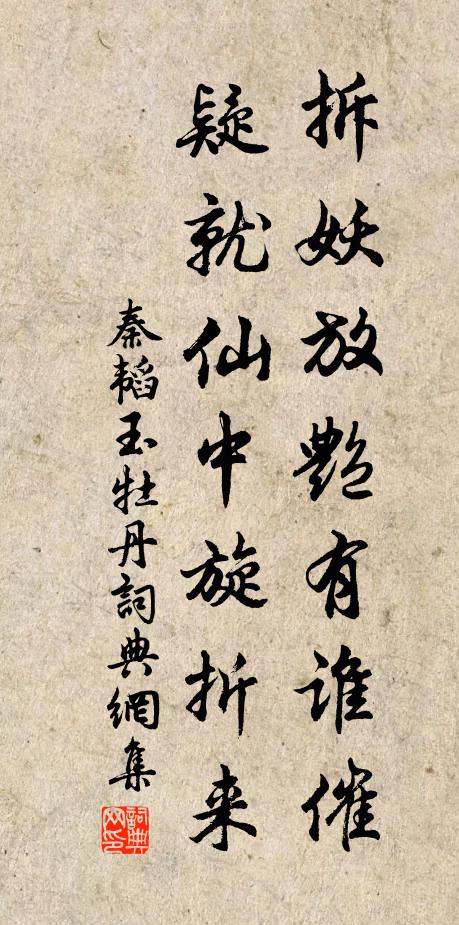 拆妖放艷有誰催
疑就仙中旋折来
秦韜玉牡丹詞典網集
詞典網印